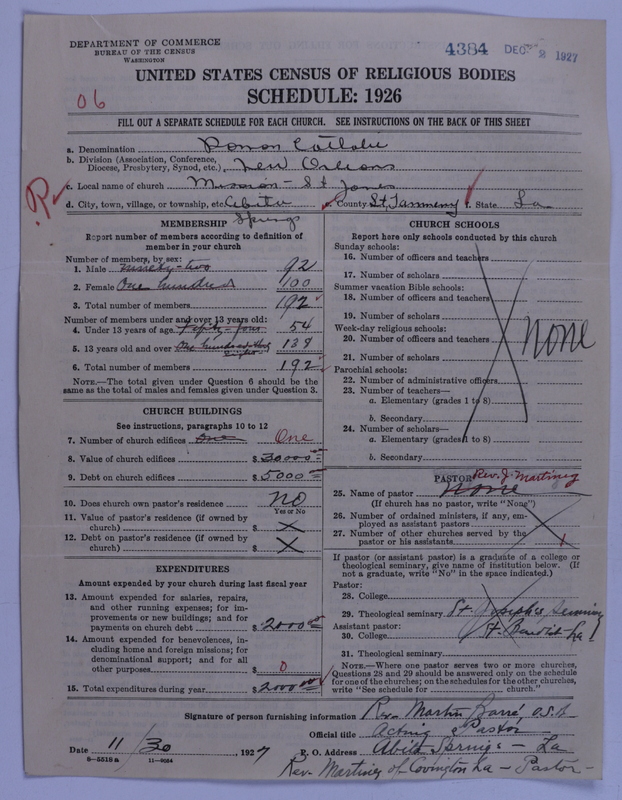 DEPARTMENT OF COMMERCE
BUREAU OF THE CENSUS
WASHINGTON
4384 DEC 2 1927
UNITED STATES CENSUS OF RELIGIOUS BODIES
06
SCHEDULE: 1926
FILL OUT A SEPARATE SCHEDULE FOR EACH CHURCH. SEE INSTRUCTIONS ON THE BACK OF THIS SHEET
a. Denomination Roman Catholic
b. Division (Association, Conference, Diocese, Presbytery, Synod, etc.) New Orleans
c. Local name of church Mission - St Janes
d. City, town, village, or township, etc. Abita Springs County St. Tammany f. State La
MEMBERSHIP
Report number of members according to definition of
member in your church
Number of members, by sex:
1. Male ninety-two 92
2. Female One hundred 100
3. Total number of members 192
Number of members under and over 13 years old:
4. Under 13 years of age Fifty-four 54
5. 13 years old and over One hundred thirty eight 138
6. Total number of members 192
NOTE.—The total given under Question 6 should be the
same as the total of males and females given under Question 3.
CHURCH BUILDINGS
See instructions, paragraphs 10 to 12
7. Number of church edifices One One
8. Value of church edifices $ 30000
9. Debt on church edifices $ 5000
10. Does church own pastor's residence? NO
Yes or No
11. Value of pastor's residence (if owned by
church) $ X
12. Debt on pastor's residence (if owned by
church) $ X
EXPENDITURES
Amount expended by your church during last fiscal year
13. Amount expended for salaries, repairs,
and other running expenses; for im-
provements or new buildings; and for
payments on church debt $ 2000
14. Amount expended for benevolences, in-
cluding home and foreign missions; for
denominational support; and for all
other purposes $ 0
15. Total expenditures during year $ 2000.00
CHURCH SCHOOLS
Report here only schools conducted by this church
Sunday schools:
16. Number of officers and teachers
17. Number of scholars
Summer vacation Bible schools:
18. Number of officers and teachers
19. Number of scholars
Week-day religious schools:
20. Number of officers and teachers
none
21. Number of scholars
Parochial schools:
22. Number of administrative officers
23. Number of teachers—
a. Elementary (grades 1 to 8)
b. Secondary
24. Number of scholars—
a. Elementary (grades 1 to 8)
b. Secondary
PASTOR Rev. J. Martinez
25. Name of pastor none
(If church has no pastor, write "None")
26. Number of ordained ministers, if any, em-
ployed as assistant pastors
27. Number of other churches served by the
pastor or his assistants 1
If pastor (or assistant pastor) is a graduate of a college or
theological seminary, give name of institution below. (If
not a graduate, write "No" in the space indicated.)
Pastor:
28. College
29. Theological seminary St Joseph's Seminary
Assistant pastor:
30. College St. Benedict La
31. Theological seminary
NOTE.—Where one pastor serves two or more churches,
Questions 28 and 29 should be answered only on the schedule
for one of the churches; on the schedule for the other churches,
write "See schedule for church."
Signature of person furnishing information Rev. Martin Barré, O.S.B
Official title Acting Pastor
Date 11/30, 1927 P. O. Address Abita Springs - La
8—5518 a 11—9084
Rev. Martinez of Covington La - Pastor -